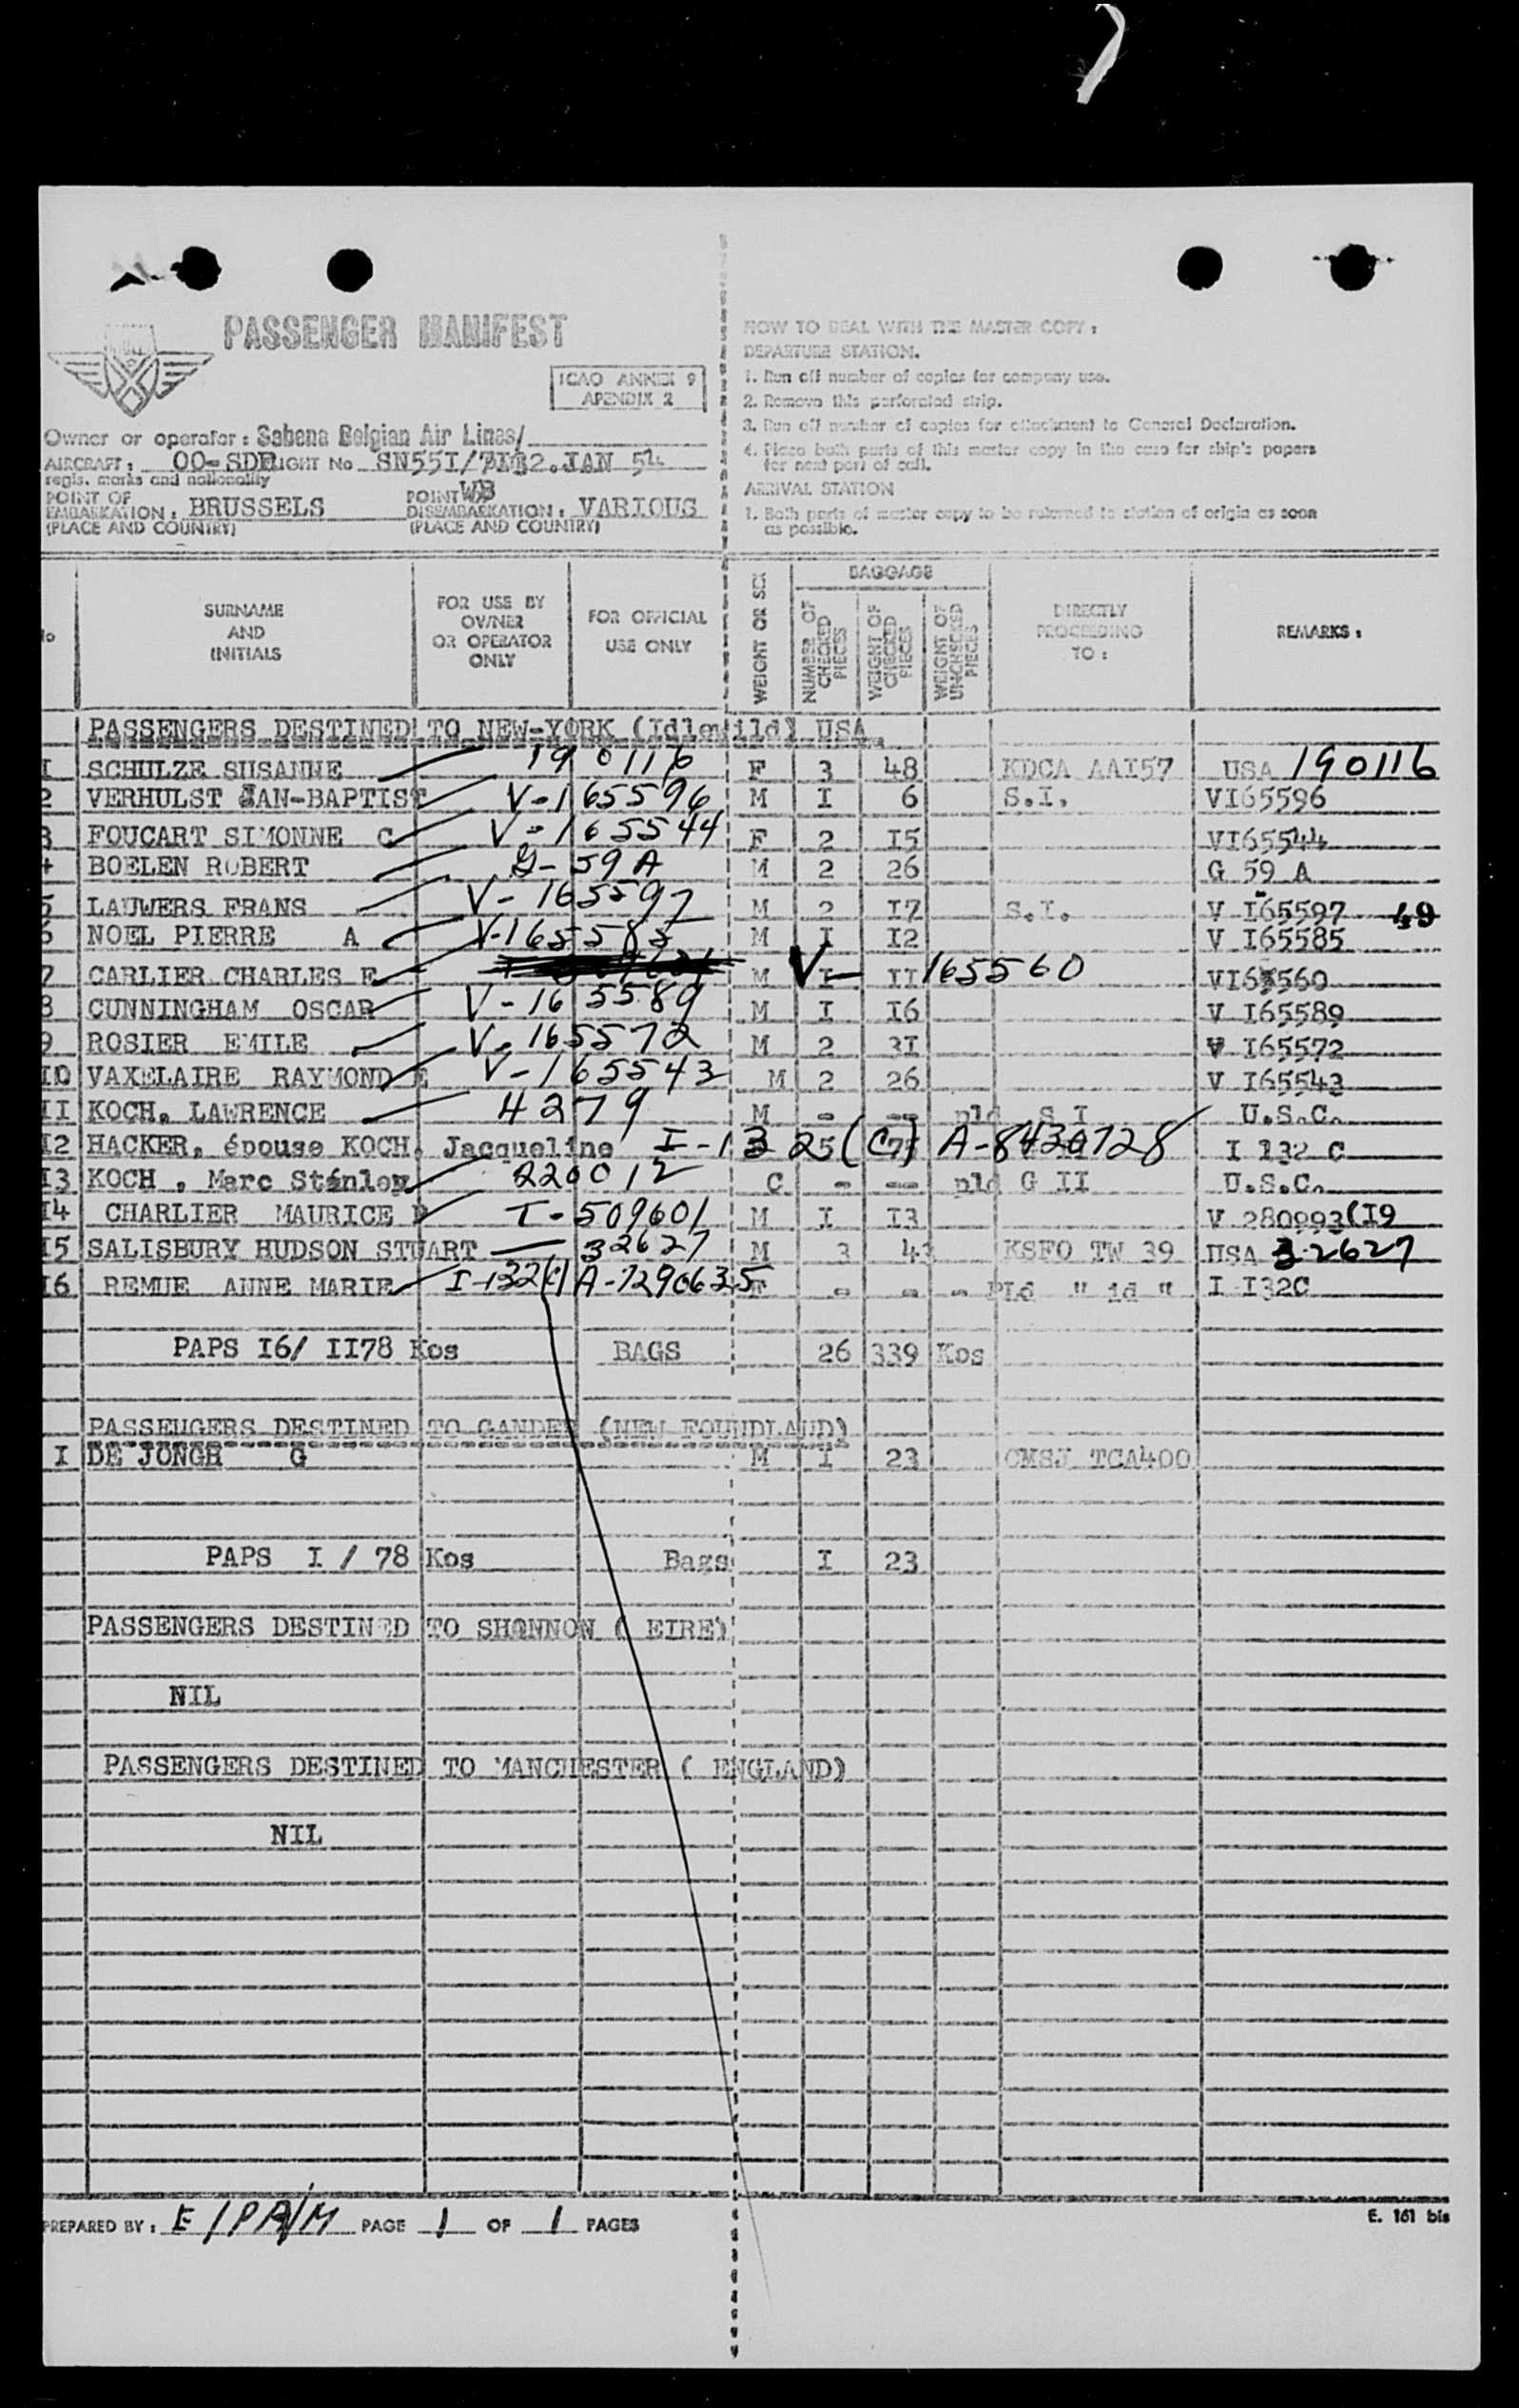 PASSENGER MANIFEST
ICAO ANNEX 9
APENDIX 2
Owner or operator: Sabena Belgian Air Lines/
AIRCRAFT: OO-SDR FLIGHT No SN551/ JAN 54
regis. marks and nationality
POINT OF EMBARKATION: BRUSSELS
(PLACE AND COUNTRY)
POINT DISEMBARKATION: VARIOUS
(PLACE AND COUNTRY)
HOW TO DEAL WITH THE MASTER COPY:
DEPARTURE STATION.
1. Run off number of copies for company use.
2. Remove this perforated strip.
3. Run off number of copies for attachment to General Declaration.
4. Place both parts of this master copy in the case for ship's papers
for next port of call.
ARRIVAL STATION
1. Both parts of master copy to be returned to station of origin as soon
as possible.
No
SURNAME
AND
INITIALS
FOR USE BY
OWNER
OR OPERATOR
ONLY
FOR OFFICIAL
USE ONLY
WEIGHT OR SEX
BAGGAGE
NUMBER OF
CHECKED
PIECES
WEIGHT OF
CHECKED
PIECES
WEIGHT OF
UNCHECKED
PIECES
DIRECTLY
PROCEEDING
TO:
REMARKS:
PASSENGERS DESTINED TO NEW-YORK (Idlewild) USA
I SCHULZE SUSANNE 190116 F 3 48 KDCA AAI57 USA 190116
2 VERHULST JAN-BAPTIST V-165596 M I 6 S.I. VI65596
3 FOUCART SIMONNE C V-165544 F 2 I5 VI65544
4 BOELEN ROBERT G-59A M 2 26 G 59 A
5 LAUWERS FRANS V-165597 M 2 I7 S.I. V I65597 49
6 NOEL PIERRE A V-165585 M I I2 V I65585
7 CARLIER CHARLES E M I II V-165560 VI65560
8 CUNNINGHAM OSCAR V-165589 M I I6 V I65589
9 ROSIER EMILE V-165572 M 2 3I V I65572
10 VAXELAIRE RAYMOND E V-165543 M 2 26 V I65543
II KOCH, LAWRENCE 4279 M - -- pld S I U.S.C.
I2 HACKER, épouse KOCH, Jacqueline I-132 (C) A-8430728 I 132 C
I3 KOCH, Marc Stánley 220012 C - -- pld G II U.S.C.
I4 CHARLIER MAURICE P T-509601 M I I3 V 280993(I9
I5 SALISBURY HUDSON STUART 32627 M 3 43 KSFO TW 39 USA 32627
I6 REMUE ANNE MARIE I-132(C) A-7290635 F - - - Pld " id " I I32C
PAPS I6/ II78 Kos BAGS 26 339 Kos
PASSENGERS DESTINED TO GANDER (NEW FOUNDLAND)
I DE JONGE G M I 23 CMSJ TCA400
PAPS I / 78 Kos Bags I 23
PASSENGERS DESTINED TO SHANNON ( EIRE)
NIL
PASSENGERS DESTINED TO MANCHESTER ( ENGLAND)
NIL
PREPARED BY: E/PA/M PAGE 1 OF 1 PAGES
E. 161 bis